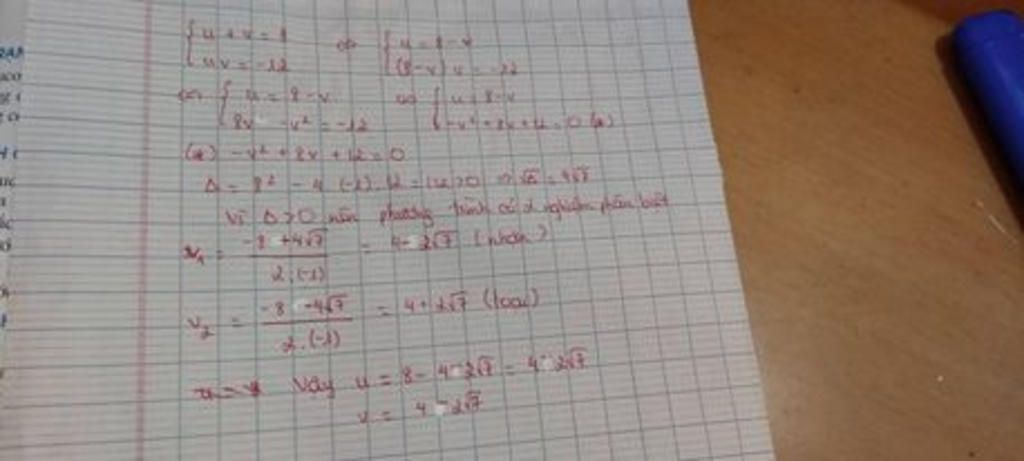 { u + v = 8 ⇔ { u = 8 - v
{ uv = -12 { (8-v) v = -12
⇔ { u = 8 - v ⇔ { u = 8 - v
{ 8v - v² = -12 { -v² + 8v + 12 = 0 (*)
(*) -v² + 8v + 12 = 0
Δ = 8² - 4 (-1) . 12 = 112 > 0 ⇒ √Δ = 4√7
Vì Δ > 0 nên phương trình có 2 nghiệm phân biệt
v₁ = (-8 + 4√7)/(2.(-1)) = 4 - 2√7 (nhận)
v₂ = (-8 - 4√7)/(2.(-1)) = 4 + 2√7 (loại)
Vậy u = 8 - 4 - 2√7 = 4 - 2√7
v = 4 - 2√7